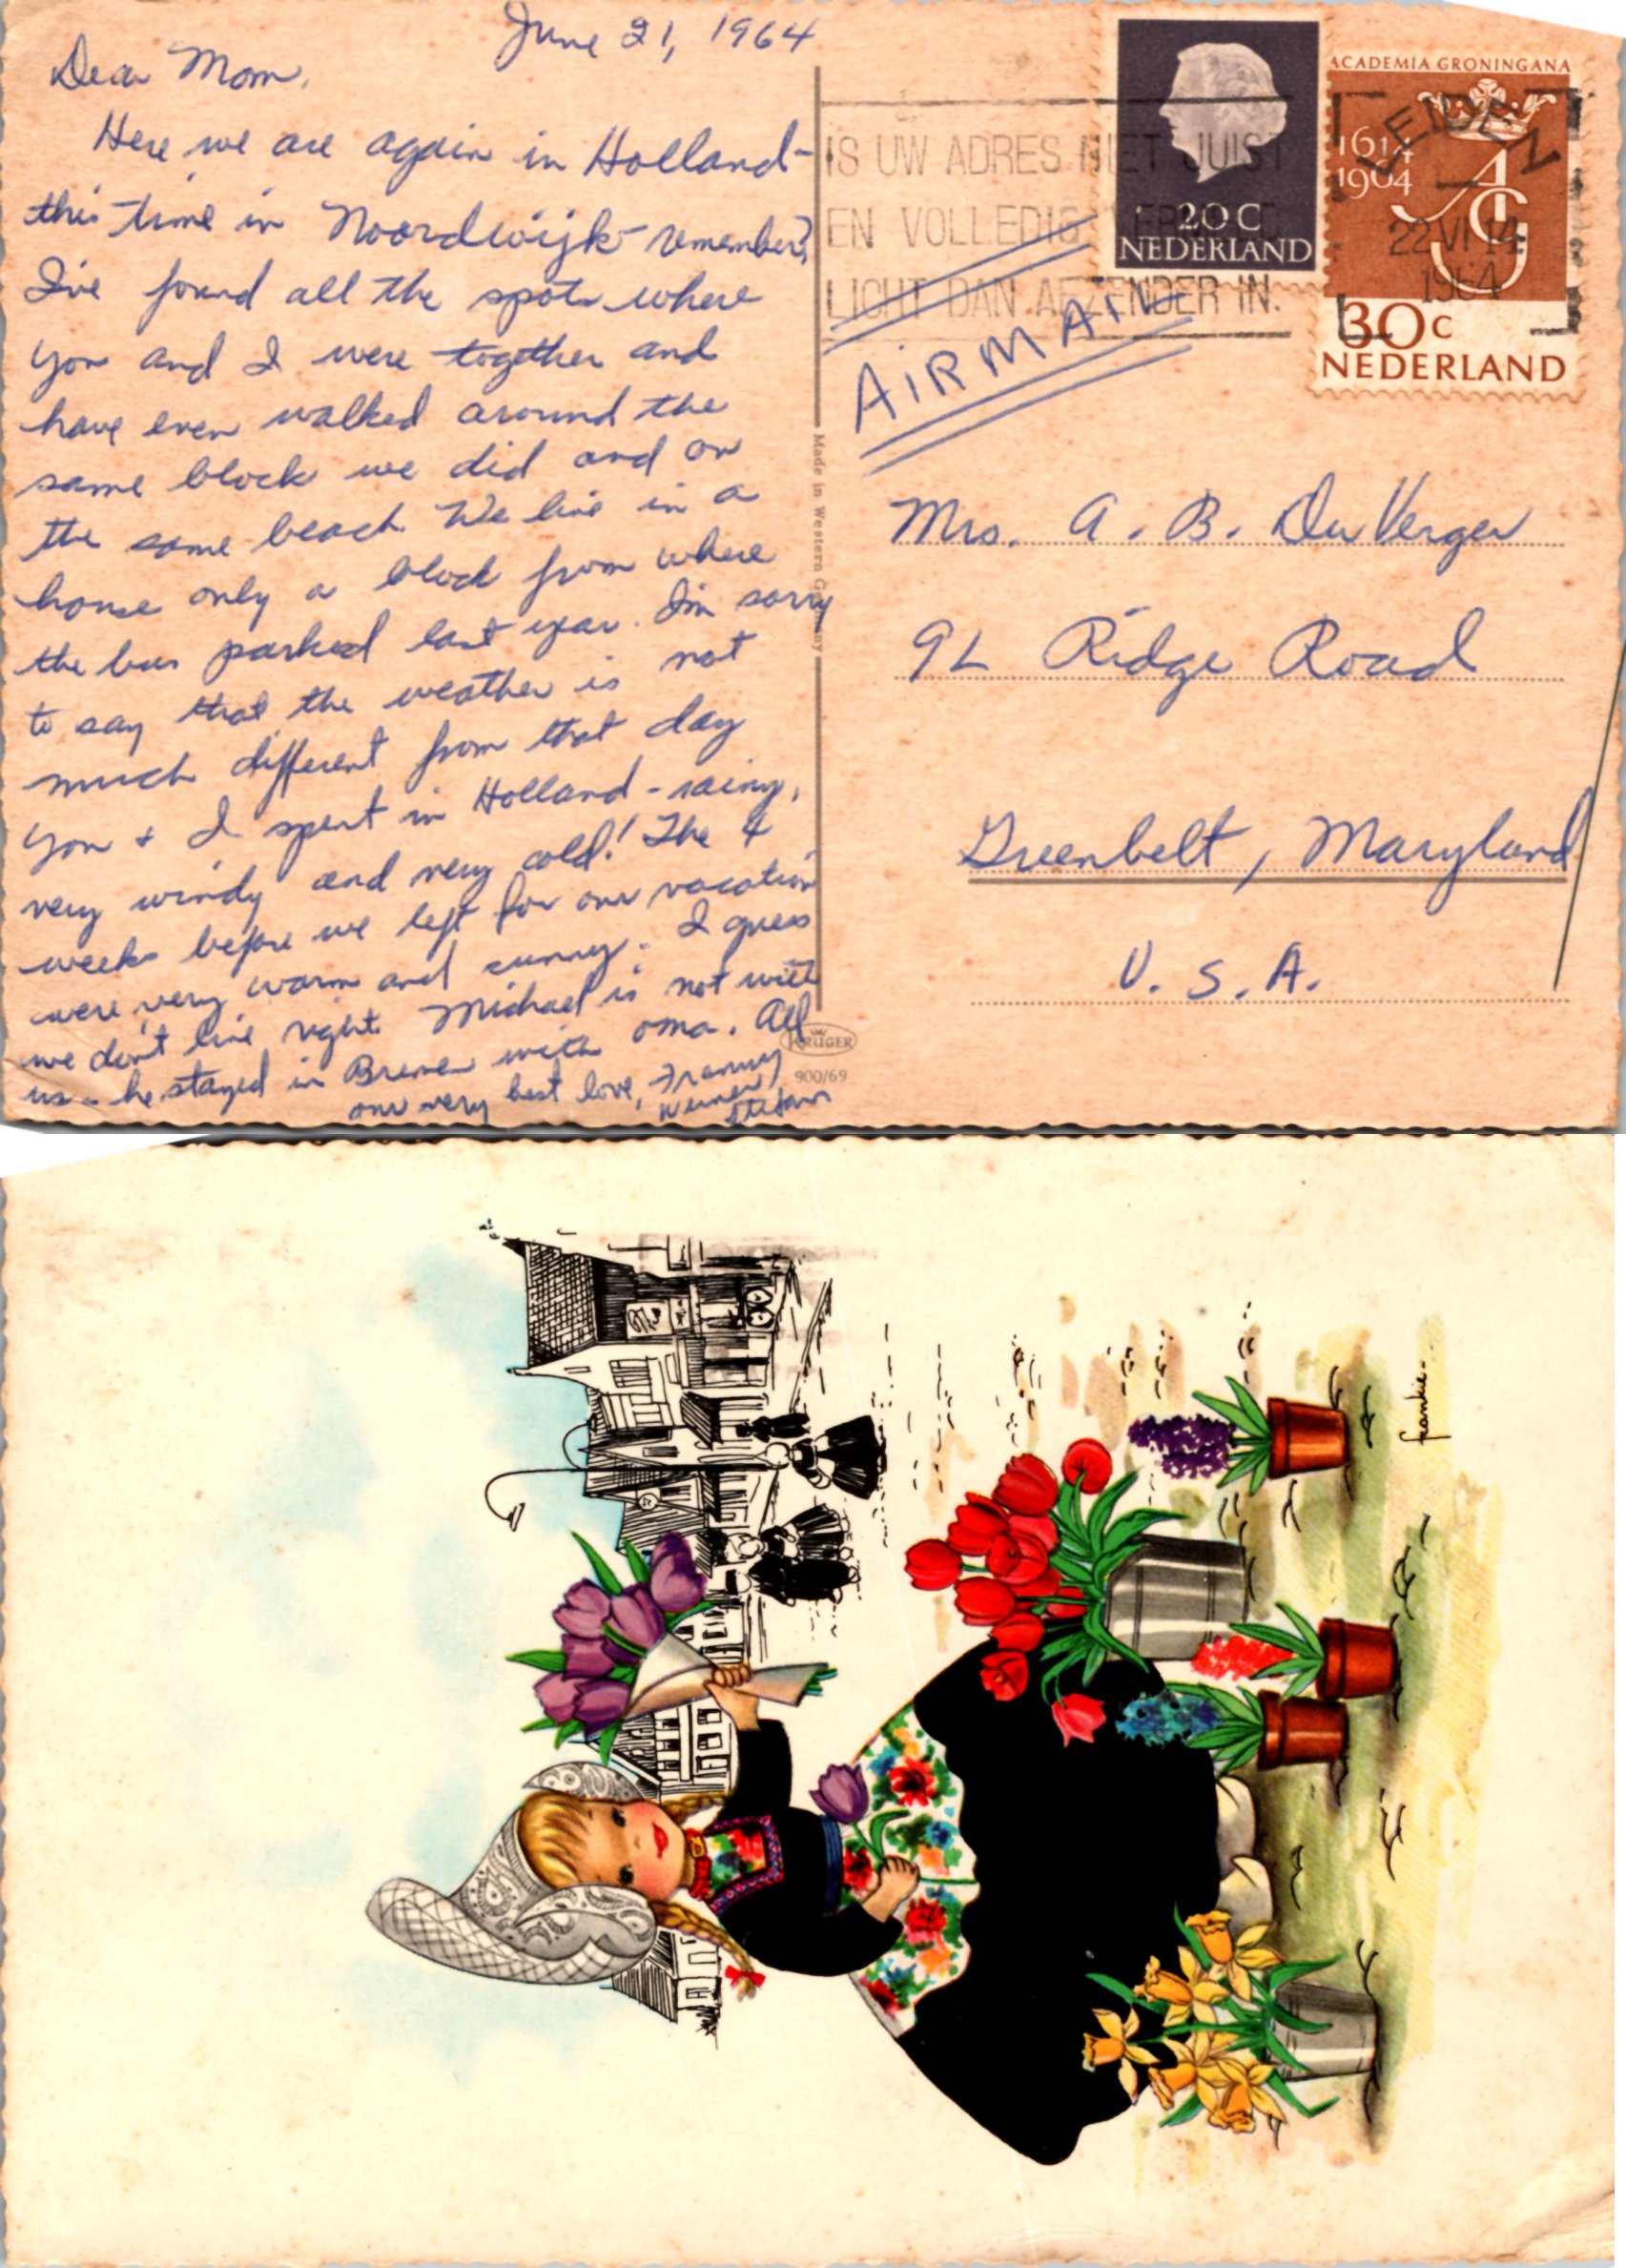 June 21, 1964
Dear Mom,
Here we are again in Holland-
this time in Noordwijk- remember?
I've found all the spots where
you and I were together and
have even walked around the
same block we did and on
the same beach. We live in a
house only a block from where
the bus parked last year. I'm sorry
to say that the weather is not
much different from that day
you + I spent in Holland - rainy,
very windy and very cold! The 4
weeks before we left for our vacation
were very warm and sunny. I guess
we don't live right. Michael is not with
us - he stayed in Bremen with oma. All
our very best love, Franny
Werner
Stefan
IS UW ADRES NIET JUIST
EN VOLLEDIG
LICHT DAN AFZENDER IN.
20 C
NEDERLAND
ACADEMIA GRONINGANA
1614
1964
AG
30 C
NEDERLAND
LEIDEN
22 VI 14
1964
AIRMAIL
Made in Western Germany
Mrs. A. B. DuVerger
9L Ridge Road
Greenbelt, Maryland
U. S. A.
KRÜGER
900/69
frankie-